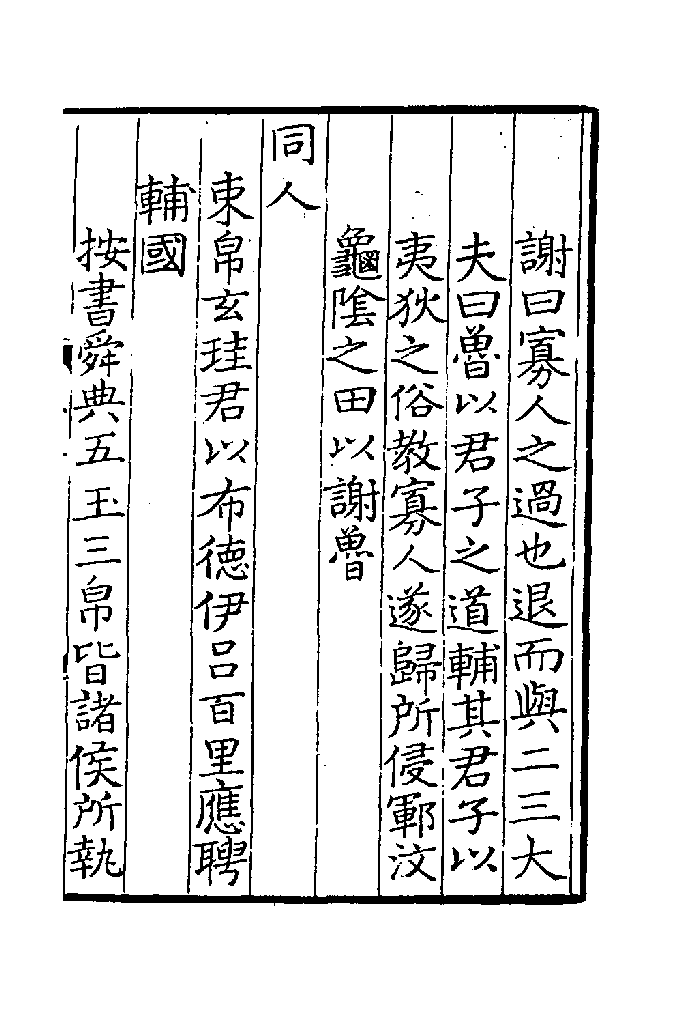 謝曰寡人之過也退而與二三大
夫曰魯以君子之道輔其君子以
夷狄之俗教寡人遂歸所侵鄆汶
龜隂之田以謝魯
同人
束帛玄珪君以布德伊呂百里應聘
輔國
按書舜典五玉三帛皆諸侯所執